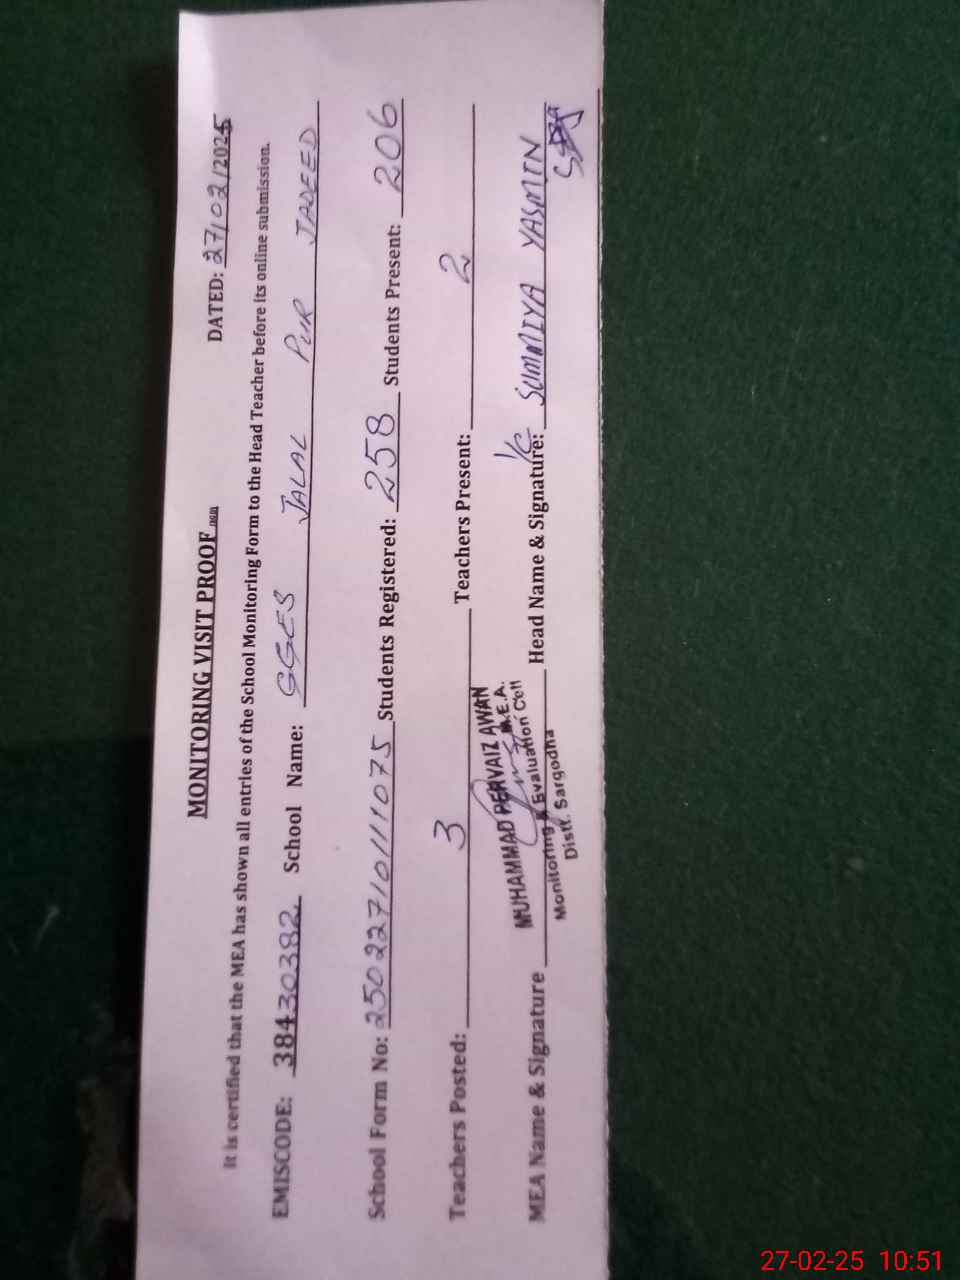 MONITORING VISIT PROOF
DATED: 27/02/2025
It is certified that the MEA has shown all entries of the School Monitoring Form to the Head Teacher before its online submission.
EMISCODE: 38430382 School Name: GGES JALAL PUR JADEED
School Form No: 250227101111075 Students Registered: 258 Students Present: 206
Teachers Posted: 3 Teachers Present: 2
MEA Name & Signature Head Name & Signature: I/C SUMMIYA YASMIN
MUHAMMAD PERVAIZ AWAN
M.E.A.
Monitoring & Evaluation Cell
Distt. Sargodha
27-02-25 10:51